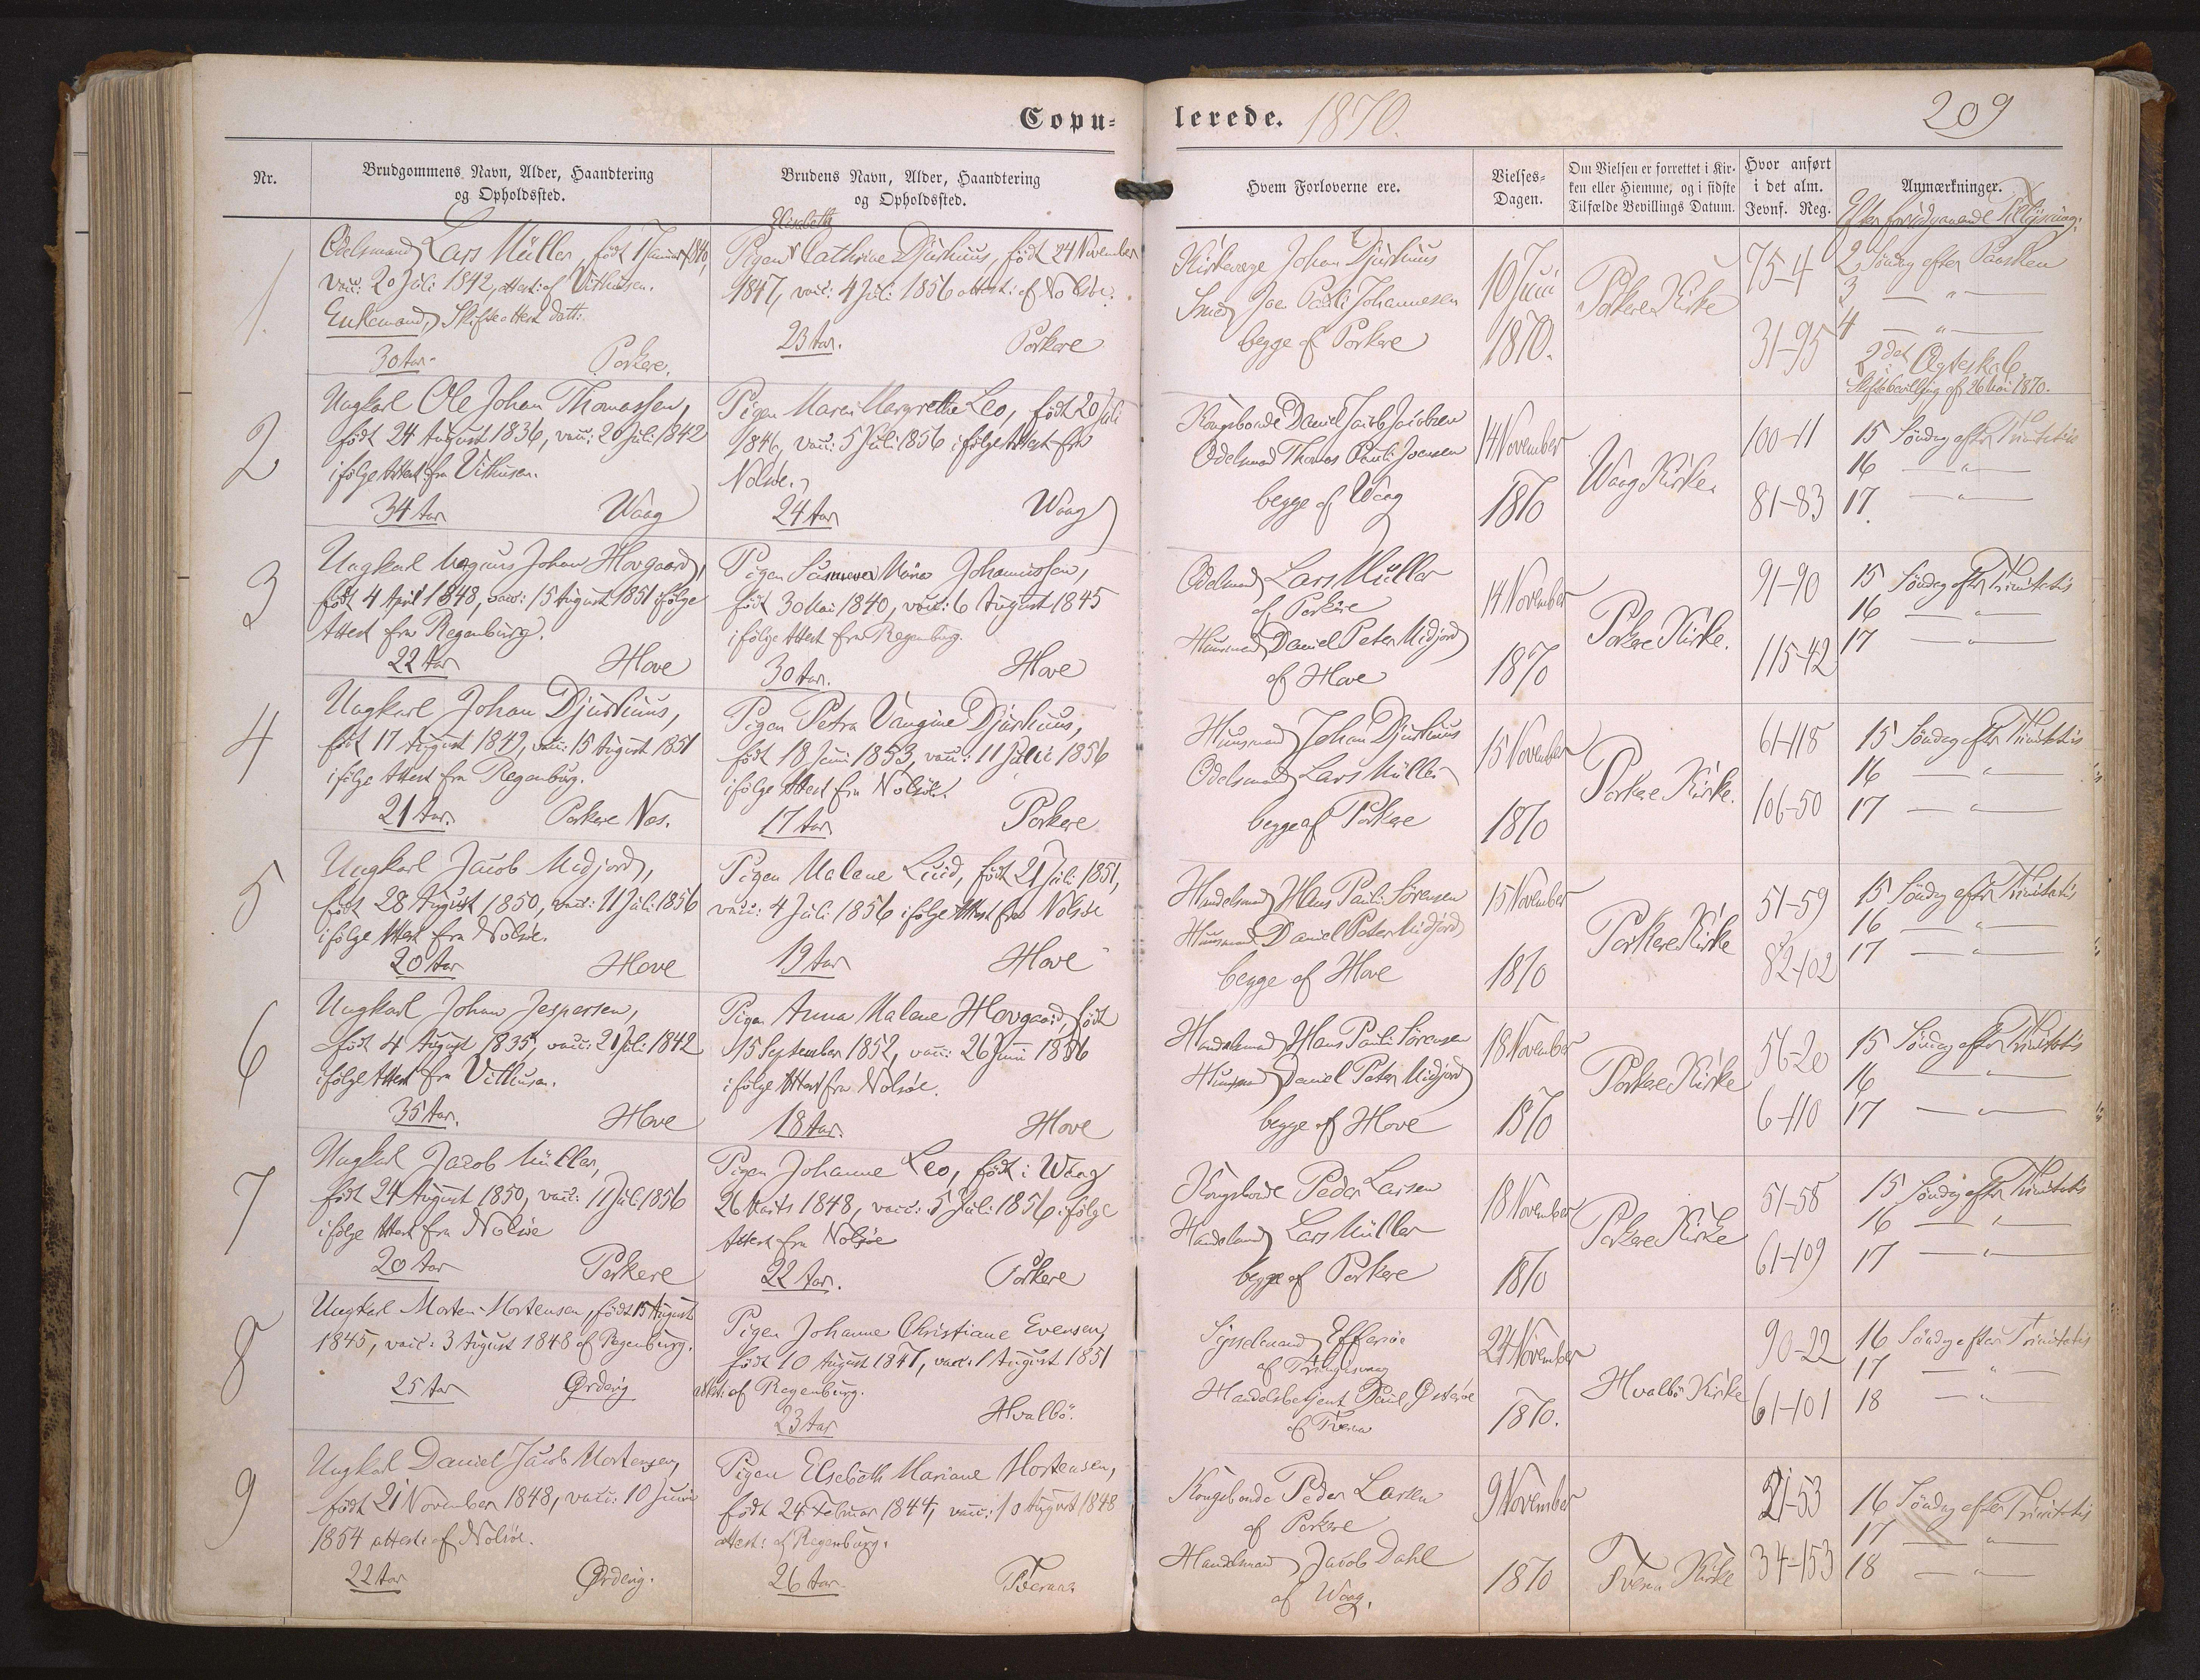 Copu=
lerede. 1870.
209
Nr.
Brudgommens Navn, Alder, Haandtering
og Opholdssted.
Brudens Navn, Alder, Haandtering
og Opholdssted.
Hvem Forloverne ere.
Vielses=
Dagen.
Om Vielsen er forrettet i Kir-
ken eller Hjemme, og i sidste
Tilfælde Bevillings Datum.
Hvor anført
i det alm.
Jevnf. Reg.
Anmærkninger.
Efter foregaaende Tillysning:
1
Odelsmand Lars Müller, født 1 Januar 1840,
vacc: 20 Juli 1842, attest: af Vithusen.
Enkemand, Skifteattest datt:
30 Aar. Porkere.
Elisabeth
Pigen Cathrine Djurhuus, født 24 November
1847, vacc: 4 Juli 1856 attest: af Nolsöe.
23 Aar. Porkere
Kirkeværge Johan Djurhuus
Smed Joen Pauli Johannesen
begge af Porkere
10 Juni
1870.
Porkere Kirke
75-4
31-95
2 Søndag efter Paasken
3 — " —
4 — " —
2det Ægteskab
Skiftebevilling af 26 Mai 1870.
2
Ungkarl Ole Johan Thomassen,
født 24 August 1836, vacc: 20 Juli 1842
ifølge Attest fra Vithusen.
34 Aar Waag
Pigen Maren Margrethe Leo, født 20 Juli
1846, vacc: 5 Juli 1856 ifølge Attest fra
Nolsöe.
24 Aar Waag
Kongsbonde Daniel Jacob Jacobsen
Odelsmand Thomas Pauli Joensen
begge af Waag
14 November
1870
Waag Kirke
100-11
81-83
15 Søndag efter Trinitatis
16 — " —
17 — " —
3
Ungkarl Magnus Johan Hovgaard,
født 4 April 1848, vacc: 15 August 1851 ifølge
Attest fra Regenburg.
22 Aar Hove
Pigen Maria Johannessen,
født 30 Mai 1840, vacc: 6 August 1845
ifølge Attest fra Regenburg.
30 Aar. Hove
Odelsmand Lars Müller
af Porkere
Huusmand Daniel Peter Midjord
af Hove
14 November
1870
Porkere Kirke.
91-90
115-42
15 Søndag efter Trinitatis
16 — " —
17 — " —
4
Ungkarl Johan Djurhuus,
født 17 August 1849, vacc: 15 August 1851
ifølge Attest fra Regenburg.
21 Aar. Porkere Næs.
Pigen Petra Vangine Djurhuus,
født 18 Juni 1853, vacc: 11 Juli 1856
ifølge Attest fra Nolsöe.
17 Aar Porkere
Huusmand Johan Djurhuus
Odelsmand Lars Müller
begge af Porkere
15 November
1870
Porkere Kirke.
61-118
106-50
15 Søndag efter Trinitatis
16 — " —
17 — " —
5
Ungkarl Jacob Midjord,
født 28 August 1850, vacc: 11 Juli 1856
ifølge Attest fra Nolsöe.
20 Aar Hove
Pigen Malene Lüid, født 21 Juli 1851,
vacc: 4 Juli 1856 ifølge Attest fra Nolsöe
19 Aar Hove
Handelsmand Hans Pauli Sörensen
Huusmand Daniel Peter Midjord
begge af Hove
15 November
1870
Porkere Kirke
51-59
82-102
15 Søndag efter Trinitatis
16 — " —
17 — " —
6
Ungkarl Johan Jespersen,
født 4 August 1835, vacc: 21 Juli 1842
ifølge Attest fra Vithusen.
35 Aar. Hove
Pigen Anna Malene Hovgaard, født
15 September 1852, vacc: 26 Juni 1856
ifølge Attest fra Nolsöe.
18 Aar. Hove
Handelsmand Hans Pauli Sörensen
Huusmand Daniel Peter Midjord
begge af Hove
18 November
1870
Porkere Kirke
56-20
6-110
15 Søndag efter Trinitatis
16 — " —
17 — " —
7
Ungkarl Jacob Müller,
født 24 August 1850, vacc: 11 Juli 1856
ifølge Attest fra Nolsöe
20 Aar Porkere
Pigen Johanne Leo, født i Waag
26 Marts 1848, vacc: 5 Juli 1856 ifølge
Attest fra Nolsöe
22 Aar. Porkere
Kongsbonde Peder Larsen
Handelsmand Lars Müller
begge af Porkere
18 November
1870
Porkere Kirke
51-58
61-109
15 Søndag efter Trinitatis
16 — " —
17 — " —
8
Ungkarl Morten Mortensen, født 15 August
1845, vacc: 3 August 1848 af Regenburg.
25 Aar Ørdevig
Pigen Johanne Christiane Evensen,
født 10 August 1847, vacc: 1 August 1851
attest: af Regenburg.
23 Aar Hvalbö.
Sysselmand Effersöe
af Trangisvaag
Handelsbetjent Poul Østeröe
af Tveraa
24 November
1870.
Hvalbö Kirke
90-22
61-101
16 Søndag efter Trinitatis
17 — " —
18 — " —
9
Ungkarl Daniel Jacob Mortensen,
født 21 November 1848, vacc: 10 Juni
1854 attest: af Nolsöe.
22 Aar Ørdevig.
Pigen Elsebeth Mariane Mortensen,
født 24 Februar 1844, vacc: 10 August 1848
attest: af Regenburg.
26 Aar. Tveraa.
Kongsbonde Peder Larsen
af Porkere
Handelsmand Jacob Dahl
af Waag.
9 November
1870
Tveraa Kirke
21-53
34-153
16 Søndag efter Trinitatis
17 — " —
18 — " —